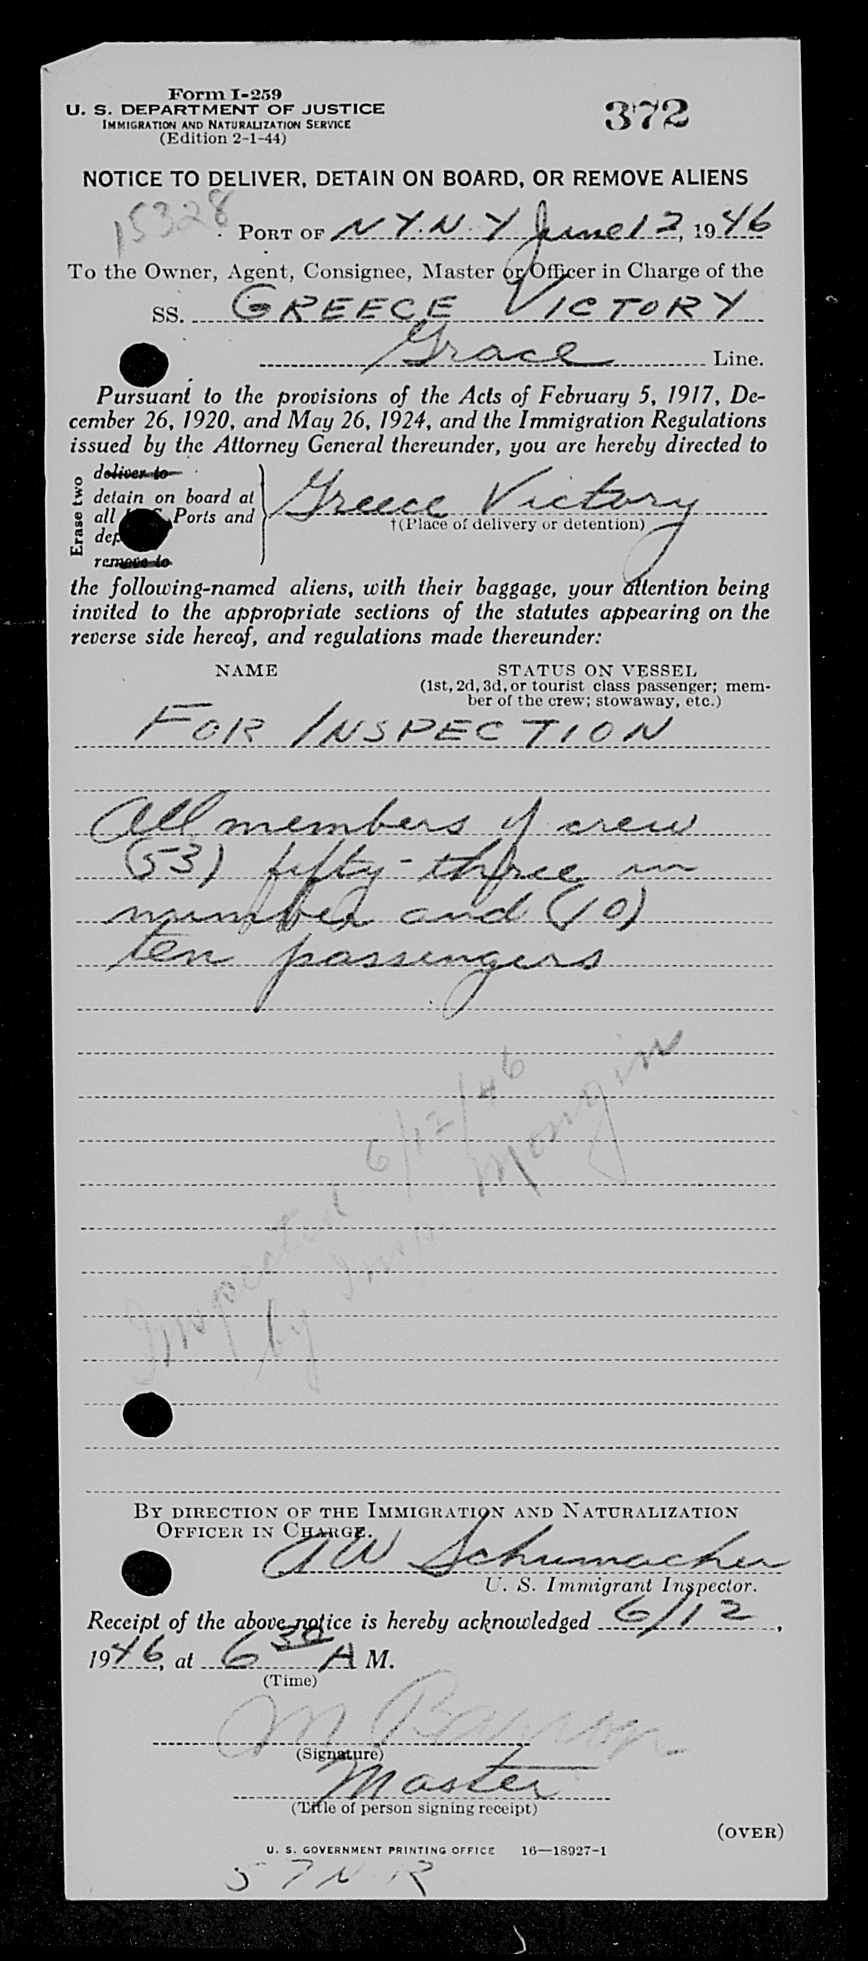 Form I-259
U. S. DEPARTMENT OF JUSTICE
IMMIGRATION AND NATURALIZATION SERVICE
(Edition 2-1-44)
372
NOTICE TO DELIVER, DETAIN ON BOARD, OR REMOVE ALIENS
15328
PORT OF N.Y.N.Y June 12, 1946
To the Owner, Agent, Consignee, Master or Officer in Charge of the
SS. GREECE VICTORY
Grace Line.
Pursuant to the provisions of the Acts of February 5, 1917, De-
cember 26, 1920, and May 26, 1924, and the Immigration Regulations
issued by the Attorney General thereunder, you are hereby directed to
Erase two
deliver to
detain on board at
all Ports and
remove to
Greece Victory
†(Place of delivery or detention)
the following-named aliens, with their baggage, your attention being
invited to the appropriate sections of the statutes appearing on the
reverse side hereof, and regulations made thereunder:
NAME STATUS ON VESSEL
(1st, 2d, 3d, or tourist class passenger; mem-
ber of the crew; stowaway, etc.)
FOR INSPECTION
All members of crew
(53) fifty-three in
number and (10)
ten passengers
Inspected 6/12/46
by Insp. Mongin
BY DIRECTION OF THE IMMIGRATION AND NATURALIZATION
OFFICER IN CHARGE.
AW Schumacher
U. S. Immigrant Inspector.
Receipt of the above notice is hereby acknowledged 6/12,
1946, at 6 30 A M.
(Time)
M
(Signature)
Master
(Title of person signing receipt)
(OVER)
U. S. GOVERNMENT PRINTING OFFICE 16—18927-1
57 N R